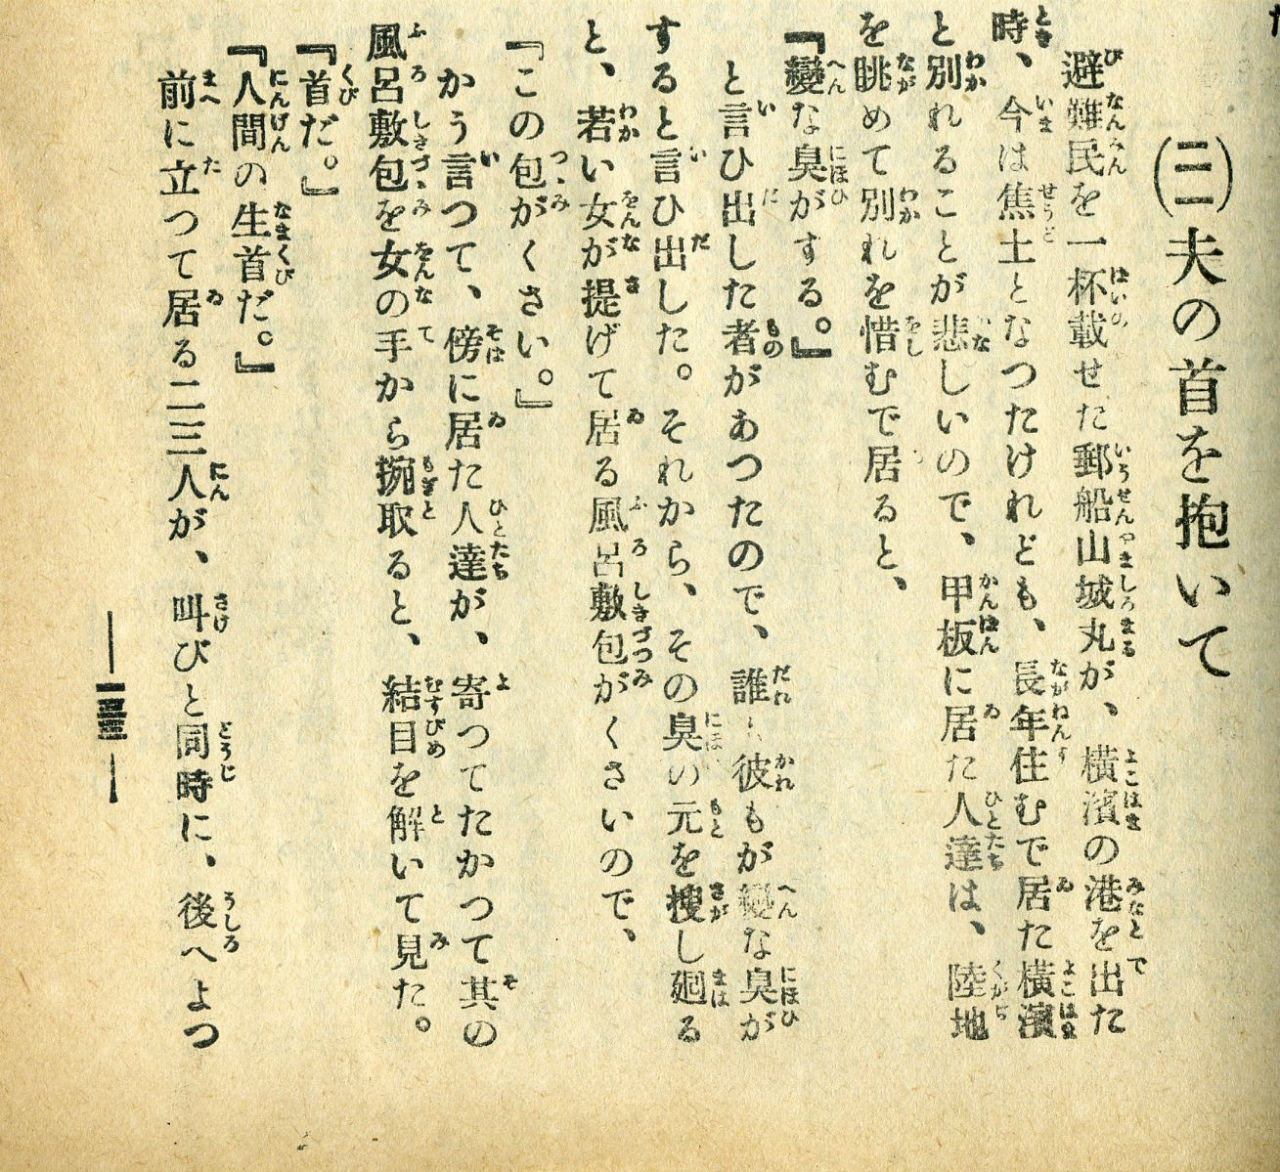 ㈢夫の首を抱いて
避難民を一杯載せた郵船山城丸が、横濱の港を出た
時、今は焦土となつたけれども、長年住むで居た横濱
と別れることが悲しいので、甲板に居た人達は、陸地
を眺めて別れを惜むで居ると、
『變な臭がする。』
と言ひ出した者があつたので、誰も彼もが變な臭が
すると言ひ出した。それから、その臭の元を捜し廻る
と、若い女が提げて居る風呂敷包がくさいので、
『この包がくさい。』
かう言つて、傍に居た人達が、寄つてたかつて其の
風呂敷包を女の手から捥取ると、結目を解いて見た。
『首だ。』
『人間の生首だ。』
前に立つて居る二三人が、叫びと同時に、後へよつ